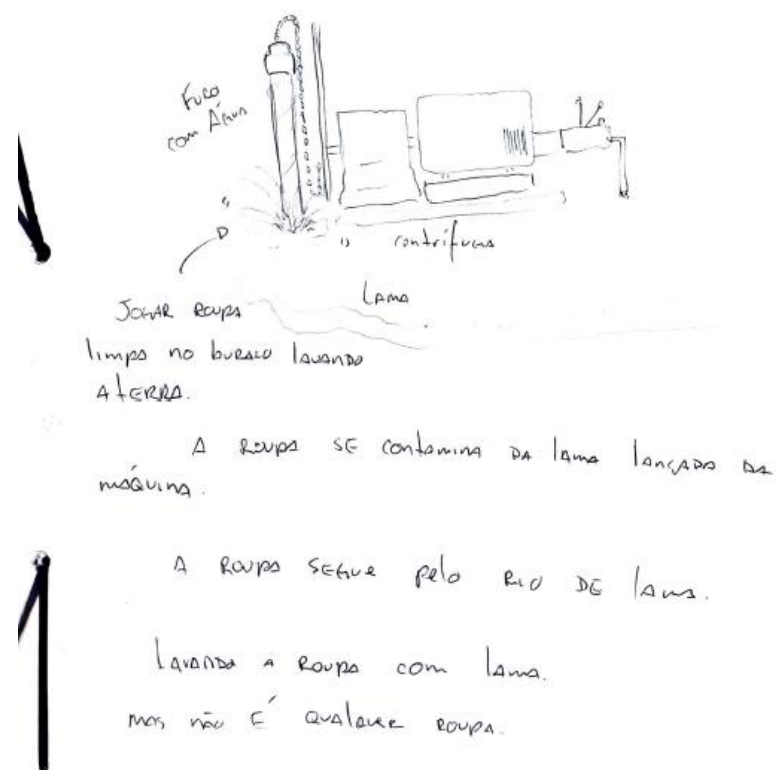 Furo
com Água
centrífuga
Lama
Jogar roupa
limpa no buraco lavando
a terra.
A roupa se contamina da lama lançada da
máquina.
A roupa segue pelo rio de lama.
Lavando a roupa com lama.
mas não é qualquer roupa.